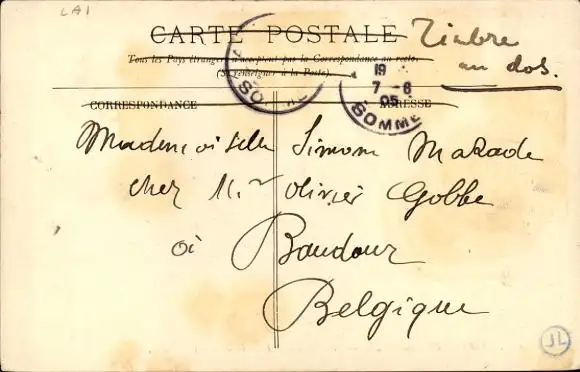 LA1
CARTE POSTALE
Timbre
au dos.
Tous les Pays étrangers n'acceptent pas la Correspondance au recto.
(Se renseigner à la Poste)
19
7-6
05
SOMME
CORRESPONDANCE
ADRESSE
Mademoiselle Simone
chez Mr Olivier Gobbe
à
Baudour
Belgique
JL